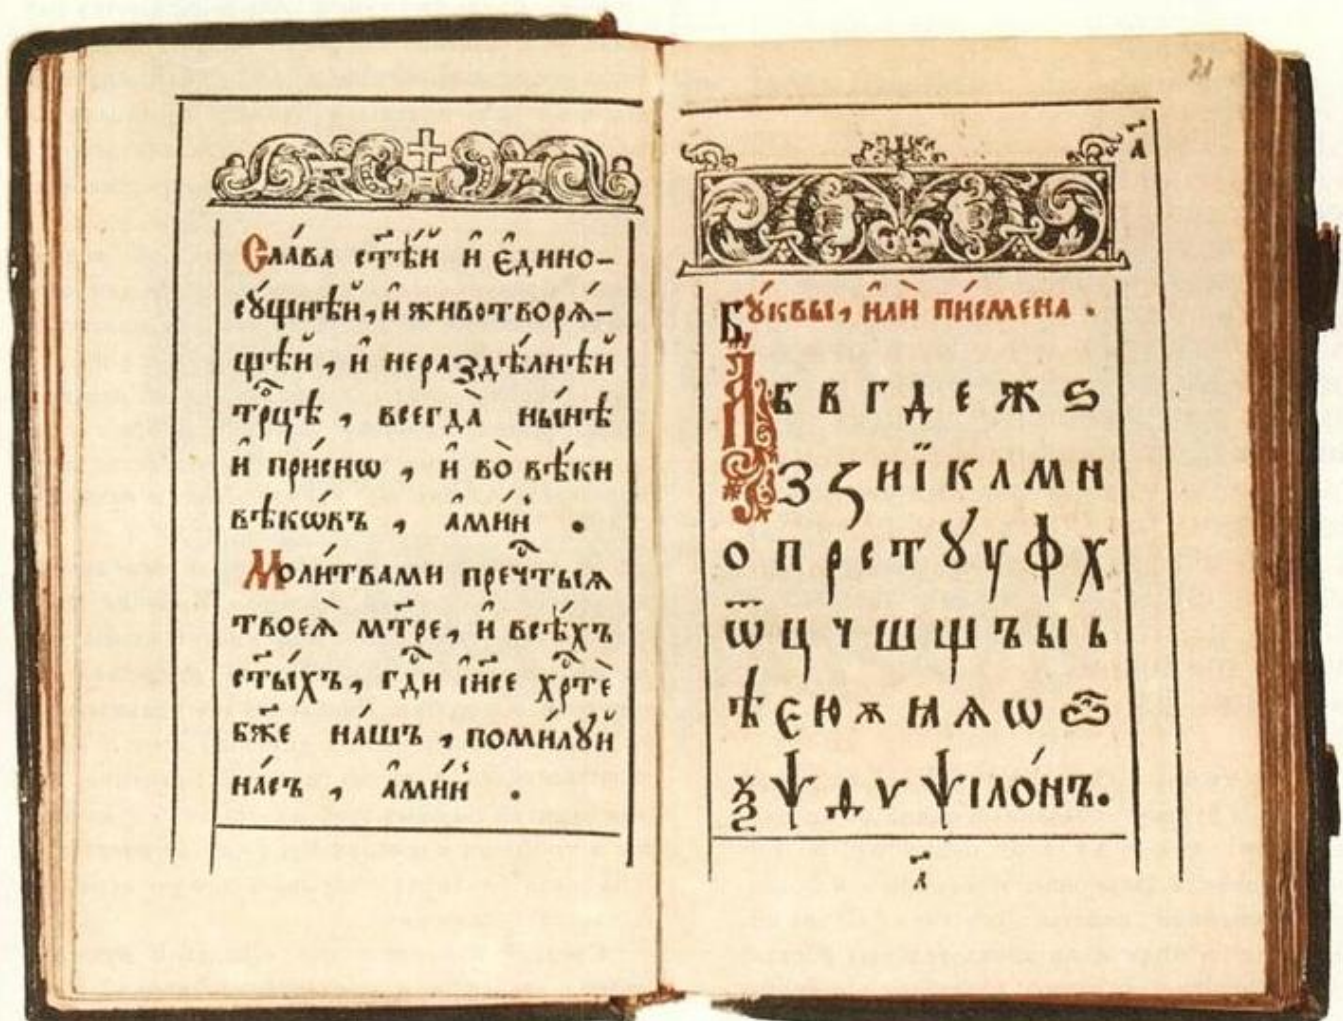 Сла́ва ст҃ѣ́й и҆ є҆дино-
сꙋ́щнѣй, и҆ животворѧ́-
щѣй, и҆ нераздѣ́лнѣй
трⷪ҇цѣ, всегда̀ ны́нѣ
и҆ при́снѡ, и҆ во̀ вѣ́ки
вѣкѡ́въ, а҆ми́нь.
Моли́твами пречⷭ҇тыѧ
твоеѧ̀ мт҃ре, и҆ всѣ́хъ
ст҃ы́хъ, гдⷭ҇и і҆и҃се хрⷭ҇тѐ
бж҃е на́шъ, поми́лꙋй
на́съ, а҆ми́нь.
21
а҃
Бꙋ́квы, и҆лѝ пи́смена.
А Б В Г Д Е Ж Ѕ
З Ꙁ И Ї К Л М Н
О П Р С Т Ꙋ У Ф Х
Ѿ Ц Ч Ш Щ Ъ Ы Ь
Ѣ Є Ю Ѫ Ꙗ Ѧ Ѡ Ѽ
Ѯ Ѱ Ѳ Ѵ Ѱіло́нъ.
а҃